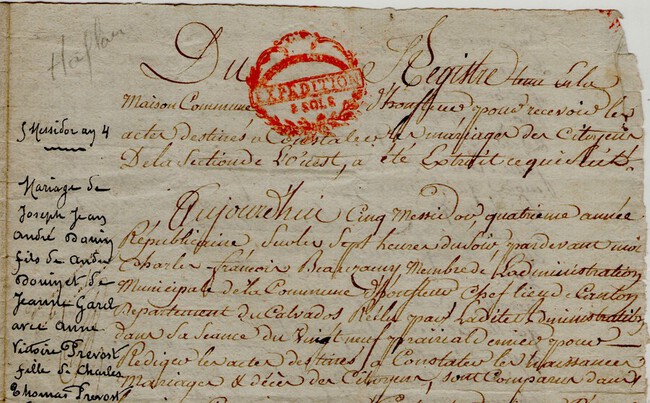 Du Registre tenu En la
Maison Commune d'honfleur pour recevoir les
actes destinés a Constater les mariages des Citoyens
De la Section de L'Ouest, a été Extrait ce qui Suit.
EXPEDITION
2 SOLS
5 Messidor an 4
Mariage de
Joseph Jean
André
fils de André
de
Jeanne
avec Anne
Victoire Prevost
fille de Charles
Thomas Prevost
Aujourd'hui Cinq Messidor, quatrieme année
Républicaine, Sur les Sept heures du Soir, pardevant moi
Charles françois Membre de L'administration
Municipale de la Commune d'honfleur Chef lieu de Canton
Département du Calvados Elu par ladite administration
dans sa Séance du Vingt neuf prairial dernier pour
Rediger les actes destinés a Constater les naissances
Mariages & décès des Citoyens, sont Comparus dans